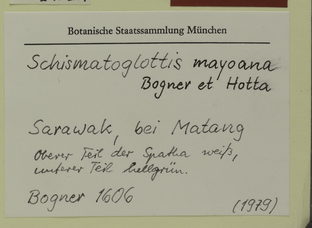 Botanische Staatssammlung München
Schismatoglottis mayoana
Bogner et Hotta
Sarawak, bei Matang
Oberer Teil der Spatha weiß,
unterer Teil hellgrün.
Bogner 1606
(1979)